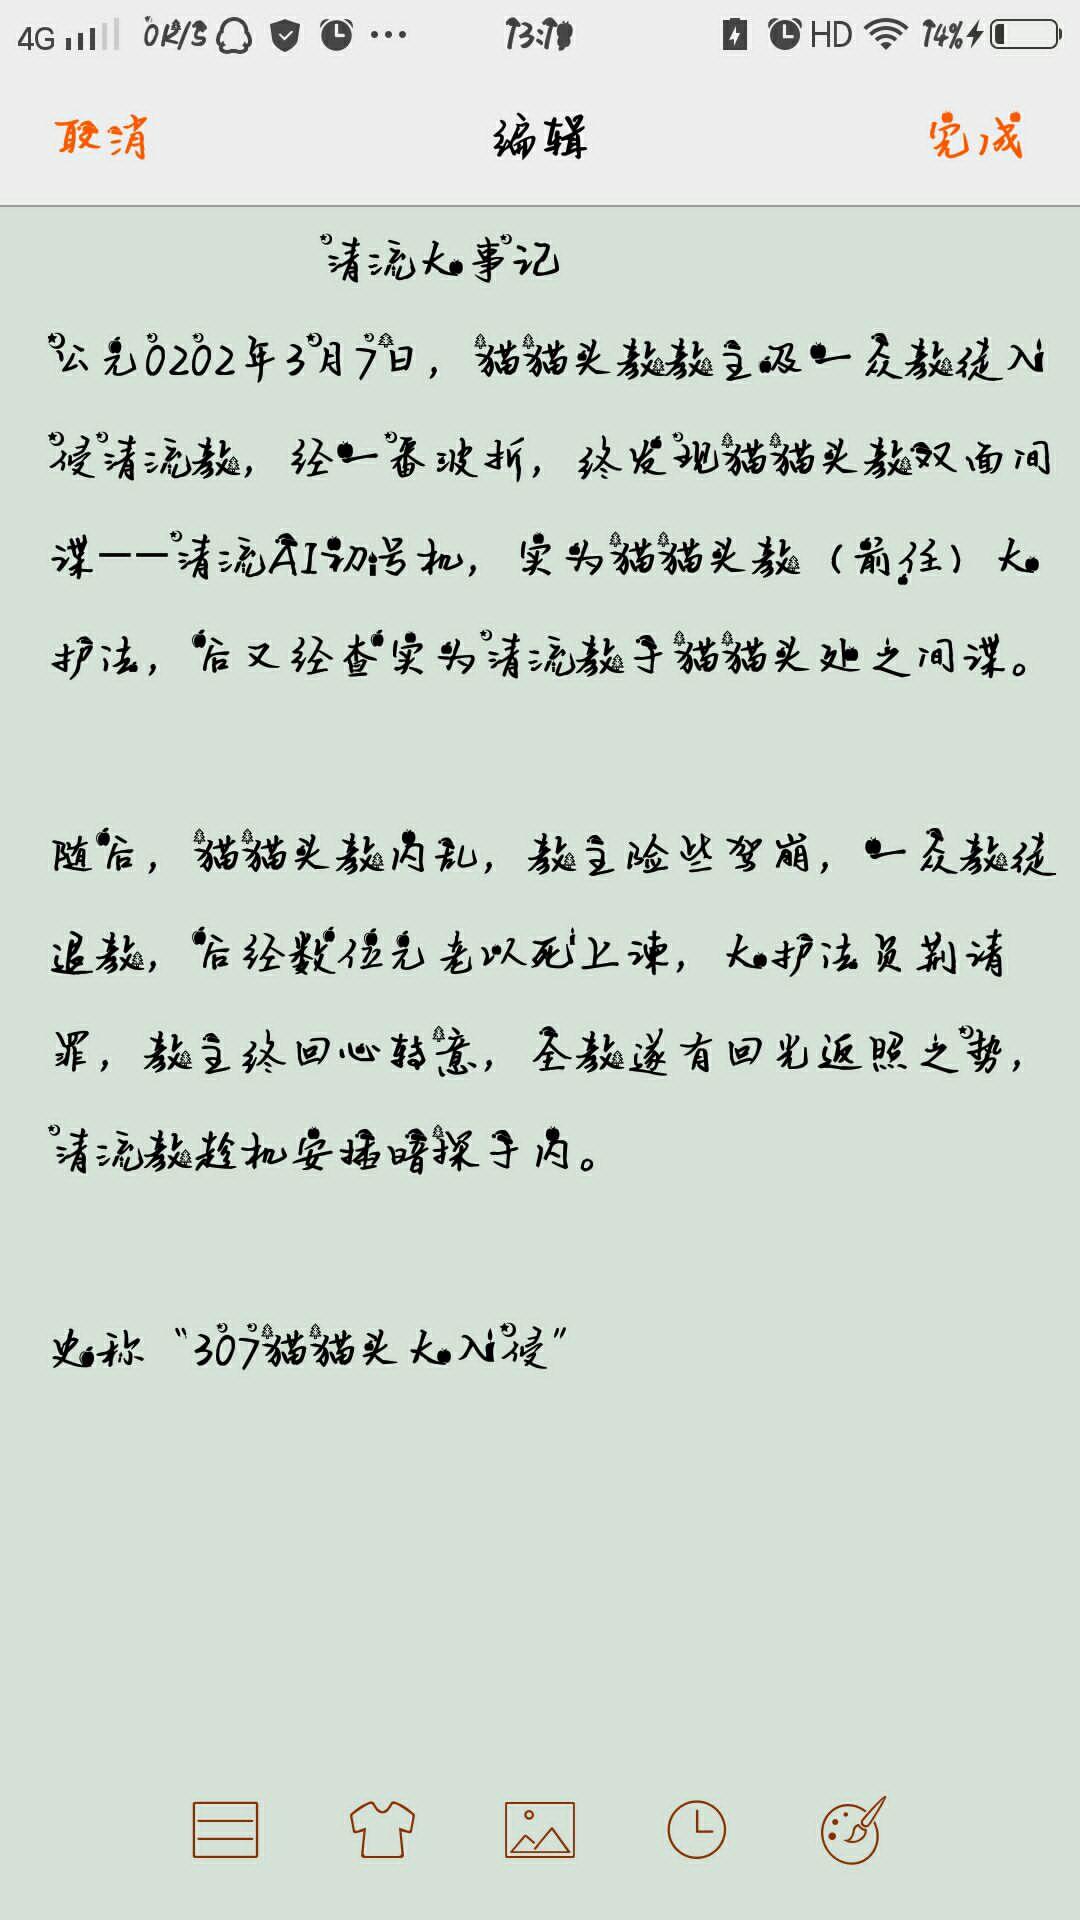 4G 0K/S 13:19 HD 14%
取消 编辑 完成
清流大事记
公元0202年3月7日，猫猫头教教主及一众教徒入
侵清流教，经一番波折，终发现猫猫头教双面间
谍——清流AI初号机，实为猫猫头教（前任）大
护法，后又经查实为清流教于猫猫头处之间谍。
随后，猫猫头教内乱，教主险些驾崩，一众教徒
退教，后经数位元老以死上谏，大护法负荆请
罪，教主终回心转意，圣教遂有回光返照之势，
清流教趁机安插暗探于内。
史称“307猫猫头大入侵”